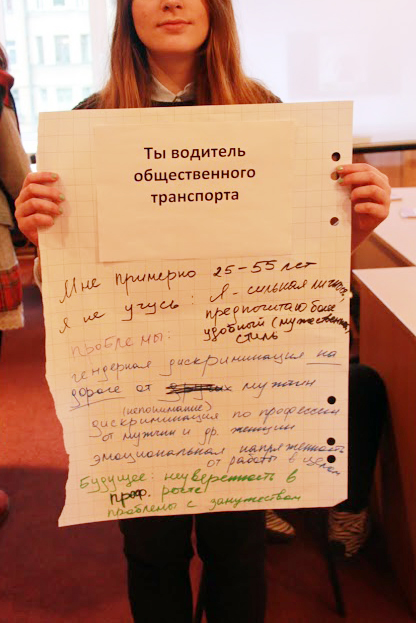 Ты водитель
общественного
транспорта
Мне примерно 25-55 лет
Я не учусь: Я - сильная личность,
предпочитаю более
удобный (мужественный)
стиль
проблемы:
гендерная дискриминация на
дороге от других мужчин
(непонимание)
дискриминация по профессии
от мужчин и др. женщин
эмоциональная напряженность
от работы в целом
Будущее: неуверенность в
проф. росте
проблемы с замужеством